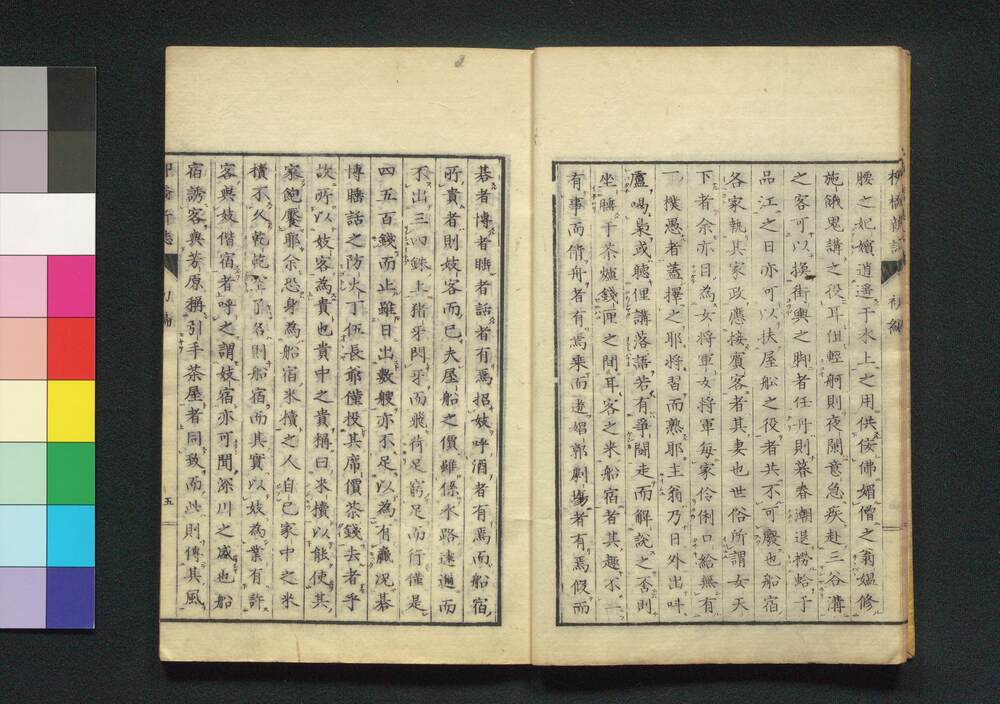 腰之妃嬪逍遥于水上之用供佞佛媚僧之翁媼修
施餓鬼講之役耳但蟶舸則夜闌意急疾赴三谷溝
之客可以換街輿之脚者任舟則暮春潮退撈蛤于
品江之日亦可以扶屋舩之役者共不可廢也船宿
各家執其家政應接賓客者其妻也世俗所謂女天
下者余亦目為女将軍女将軍每家伶俐口給無有
一樸愚者蓋擇之耶将習而熟耶主翁乃日外出呌
盧喝梟或聽俚講落語若有爭鬪走而解說之否則
坐睡于茶爐錢匣之間耳客之来船宿者其趣不一
有事而脩舟者有焉乘而遊娼郭劇場者有焉假而
碁者博者睡者話者有焉招妓呼酒者有焉而船宿
所貴者則妓客而已夫屋船之價雖係水路遠邇而
不出三四銖上猪牙閃牙而飛荷足窮足而行僅是
四五百錢而止雖日出數艘亦不足以為有贏况碁
博睡話之防火丁伍長爺僅投其席價茶錢去者乎
故所以妓客為貴也貴中之貴稱曰米櫃以能使其
家飽饜耶余恐身為船宿米櫃之人自己家中之米
櫃不久乾乾空了名則船宿而其實以妓為業有許
客與妓偕宿者呼之謂妓宿亦可聞深川之盛也船
宿誘客與芳原稱引手茶屋者同致而此則傳其風
五